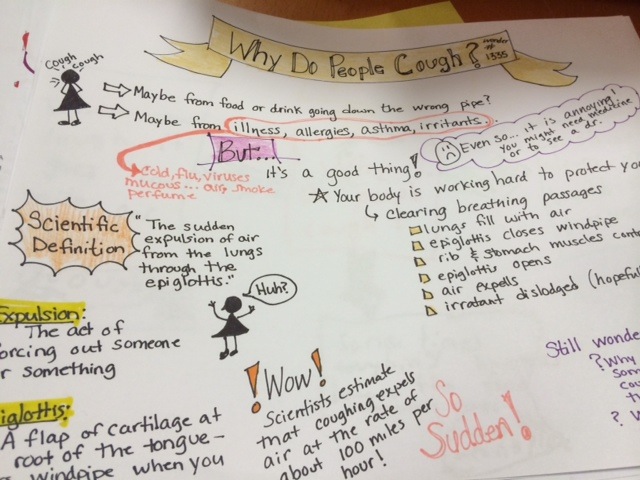 Why Do People Cough?
wonder
#
1335
Cough
cough
Maybe from food or drink going down the wrong pipe?
Maybe from illness, allergies, asthma, irritants...
But...
It's a good thing!
Even so... it is annoying!
You might need medicine
or to see a dr.
Cold, flu, viruses
mucous... air, smoke
perfume
Your body is working hard to protect you
clearing breathing passages
lungs fill with air
epiglottis closes windpipe
rib & stomach muscles cont
epiglottis opens
air expells
irratant dislodged (hopeful
Scientific
Definition
"The sudden
expulsion of air
from the lungs
through the
epiglottis."
Huh?
Expulsion:
The act of
orcing out someone
r something
iglottis:
A flap of cartilage at
root of the tongue-
windpipe when you
! Wow!
Scientists estimate
that coughing expels
air at the rate of
about 100 miles per
hour!
So
Sudden!
Still wonde
? Why
som
cou
? W